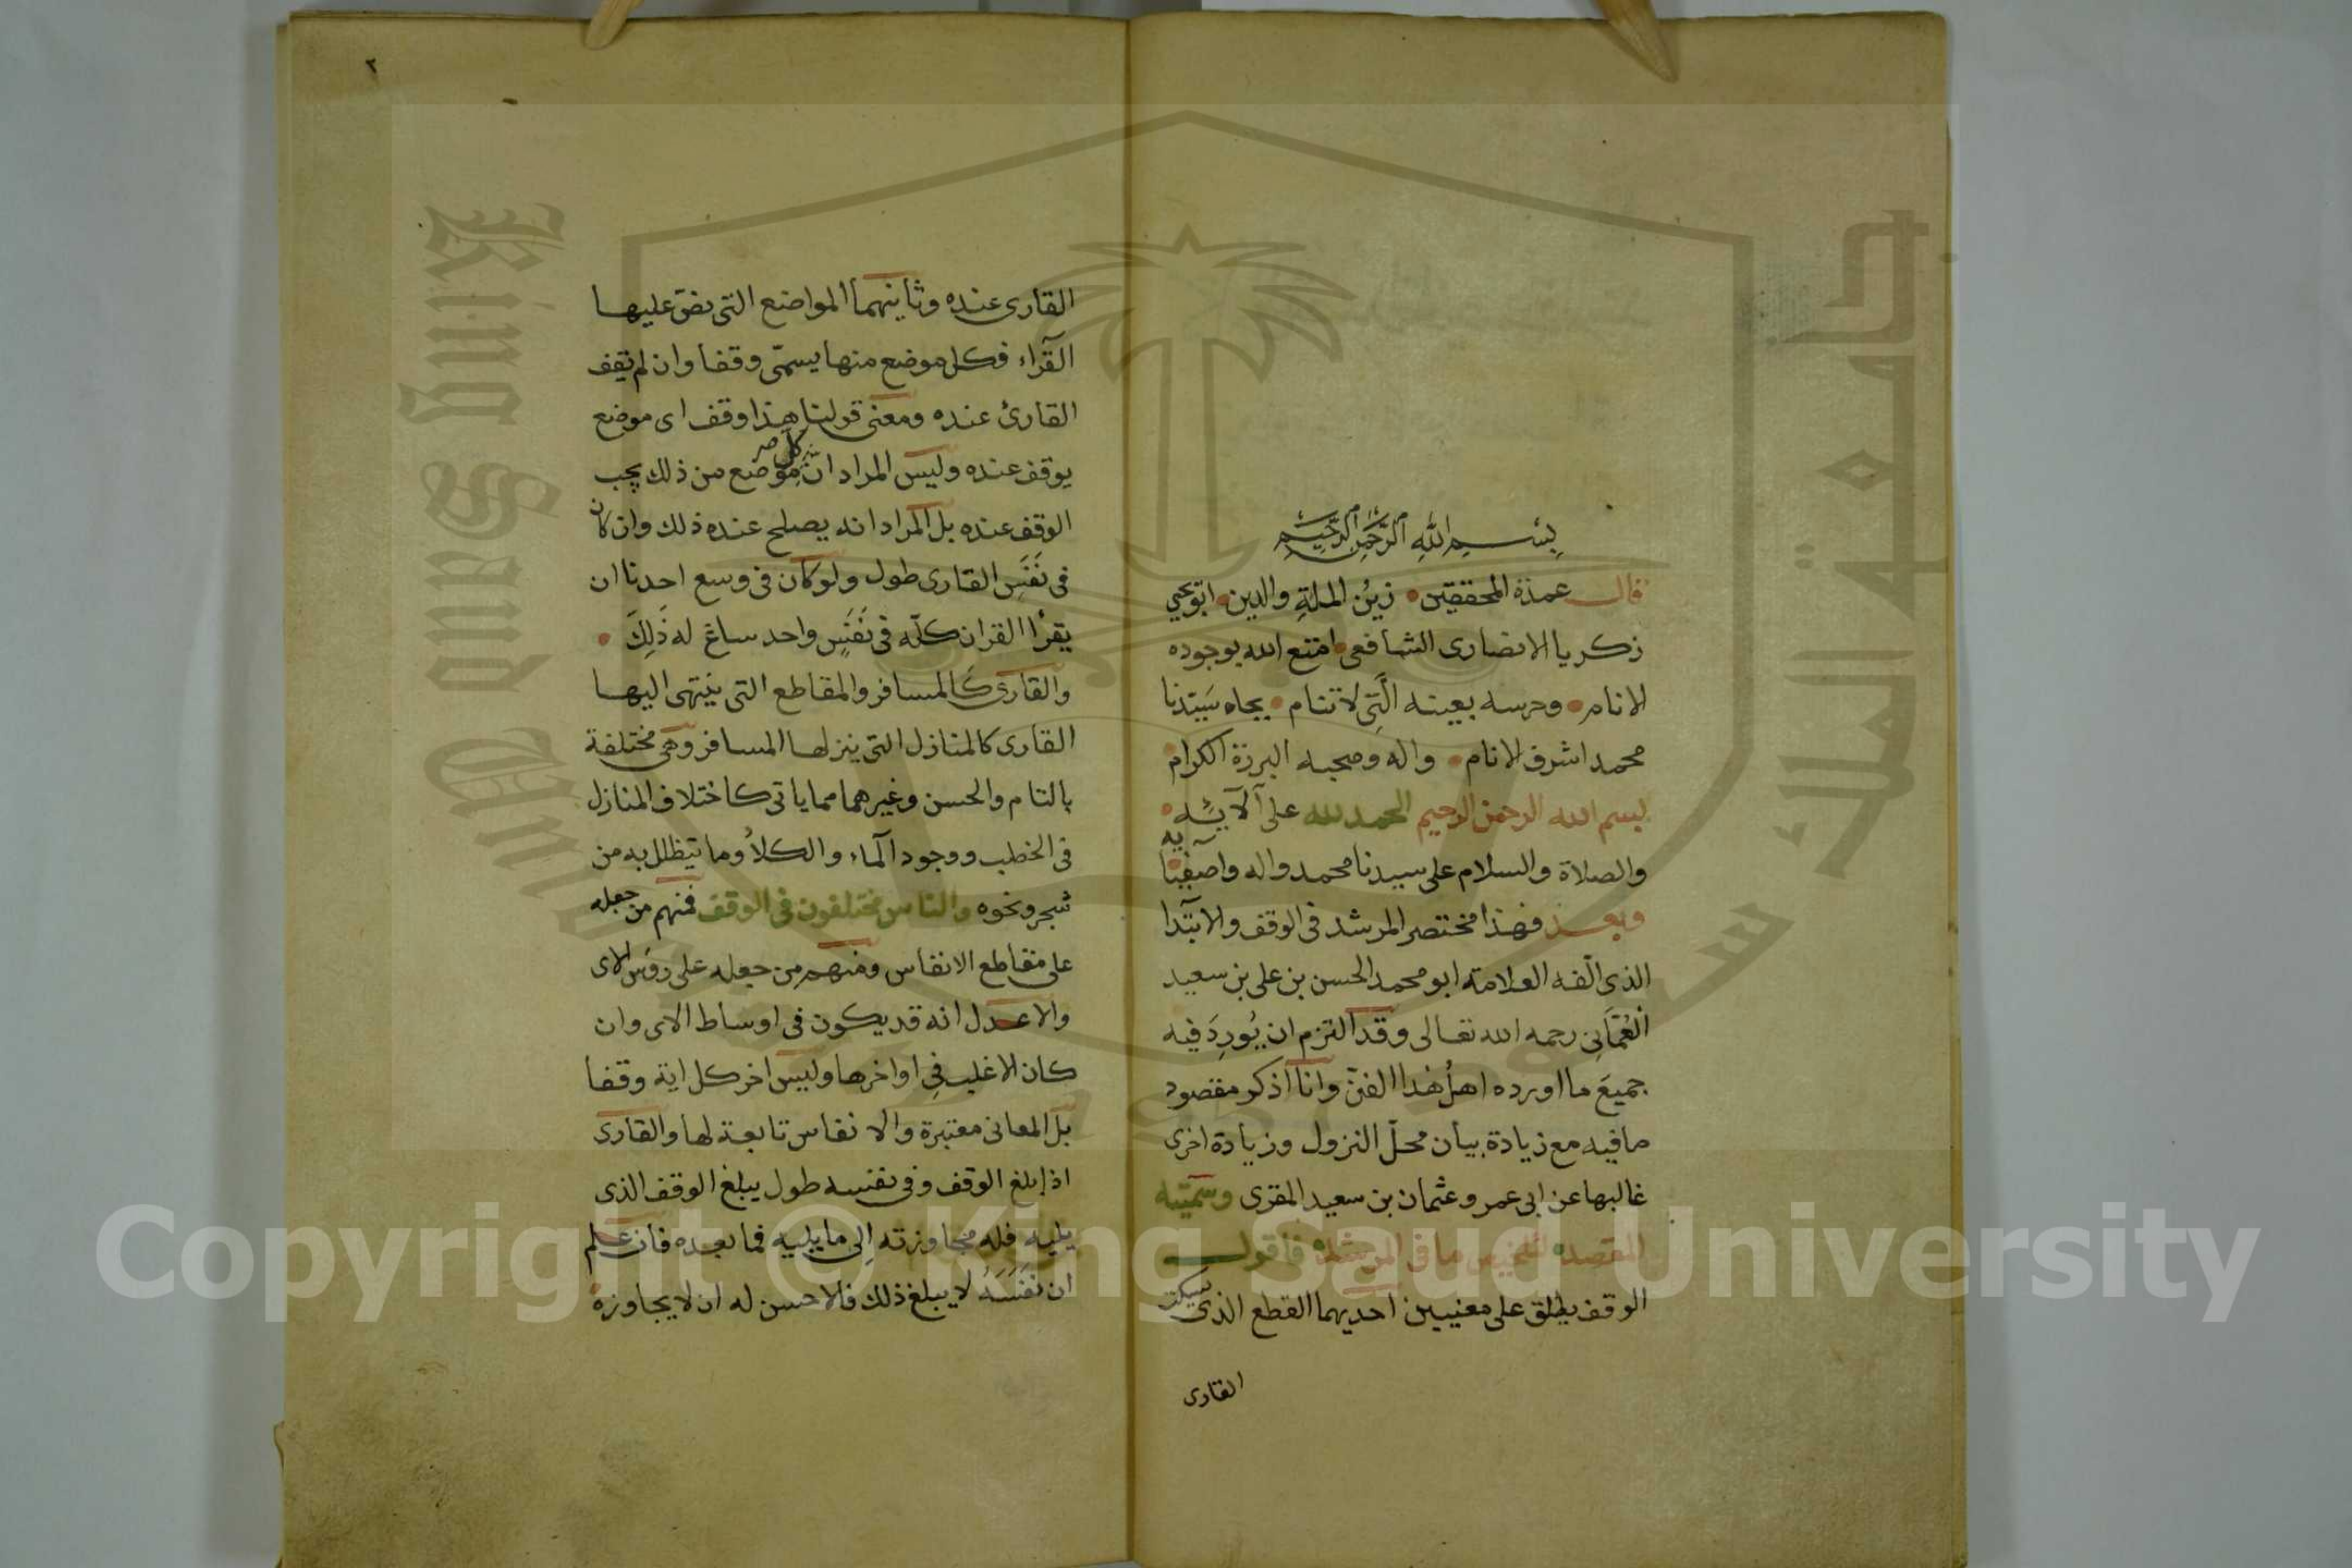 بِسْمِ اللهِ الرَّحْمَنِ الرَّحِيمِ
قال عمدة المحققين زَيْنُ الملةِ والدين ابو يحيي
زكريا الانصارى الشافعى امتع الله بوجوده
الانام وحرسه بعينه الَّتِى لا تنام بجاه سَيّدنا
محمد اشرف الانام واله وصحبه البررة الكرام
بسم الله الرحمن الرحيم الحمد لله على آلآئه
والصلاة والسلام على سيدنا محمد واله واصفيآيه
وبعد فهذا مختصر المرشد فى الوقف والابتدا
الذى الّفه العلامة ابو محمد الحسن بن على بن سعيد
الْعُمَّانِى رحمه الله تعالى وقد التزم ان يُورِدَ فيه
جميعَ ما اورده اهلُ هذا الفنّ وانا اذكر مقصود
ما فيه مع زيادة بيان محلّ النزول وزيادة اخرى
غالبها عن ابى عمرو عثمان بن سعيد المقرى وسمّيته
المقصد لتلخيص ما فى المرشد فاقول
الوقف يطلق على معنيين احديهما القطع الذى يسكت
القارى
٢
القارى عنده وثانيهما المواضع التى نصّ عليها
القرّاء فكل موضع منها يسمّى وقفا وان لم يقف
القارئ عنده ومعنى قولنا هذا وقف اى موضع
يوقف عنده وليس المراد انّ كل موضع من ذلك يجب
الوقف عنده بل المراد انه يصلح عنده ذلك وان كان
فى نَفَسِ القارى طول ولو كان فى وسع احدنا ان
يقرأ القران كلّه فى نَفَسٍ واحد ساغ له ذَلِكَ
والقارئ كَالمسافر والمقاطع التى ينتهى اليها
القارى كالمنازل التى ينزلها المسافر وهى مختلفة
بالتام والحسن وغيرهما مما ياتى كاختلاف المنازل
فى الخطب ووجود المآء والكلأ وما يتظلل به من
شجر ونحوه والناس مختلفون فى الوقف فمنهم من جعله
على مقاطع الانفاس ومنهم من جعله على روس الاى
والاعدل انه قد يكون فى اوساط الاى وان
كان الاغلب فى اواخرها وليس اخر كل اية وقفا
بل المعانى معتبرة والانفاس تابعة لها والقارى
اذا بلغ الوقف وفى نفسه طول يبلغ الوقف الذى
يليه فله مجاوزته الى ما يليه فما بعده فان علم
ان نَفَسَهُ لا يبلغ ذلك فالاحسن له ان لا يجاوزه
Copyright © King Saud University
King Saud University
جامعة الملك سعود
1957